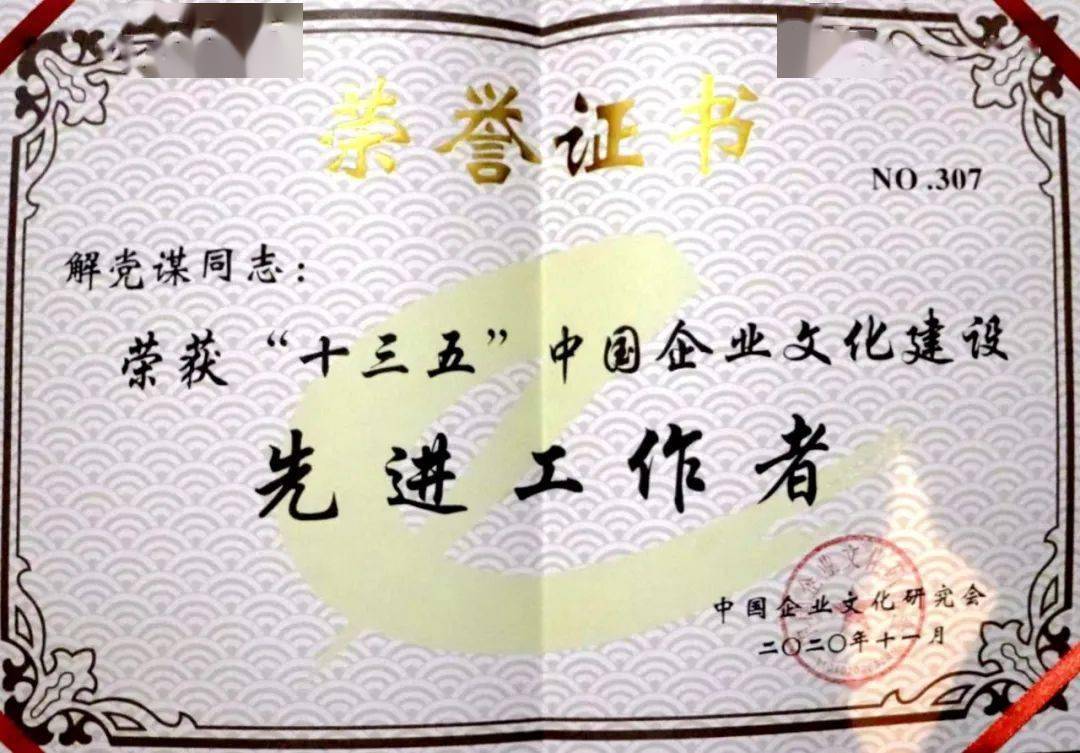 荣誉证书
NO .307
解党谋同志：
荣获“十三五”中国企业文化建设
先进工作者
中国企业文化研究会
二〇二〇年十一月